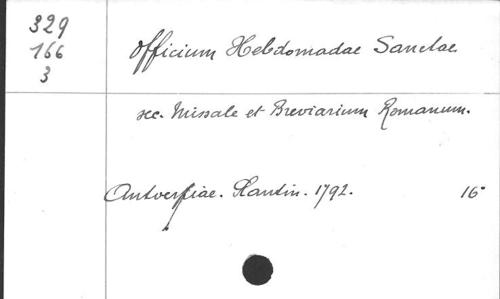 329
166
3
Officium Hebdomadae Sanctae
sec. Missale et Breviarium Romanum.
Antverpiae. Plantin. 1792. 16°